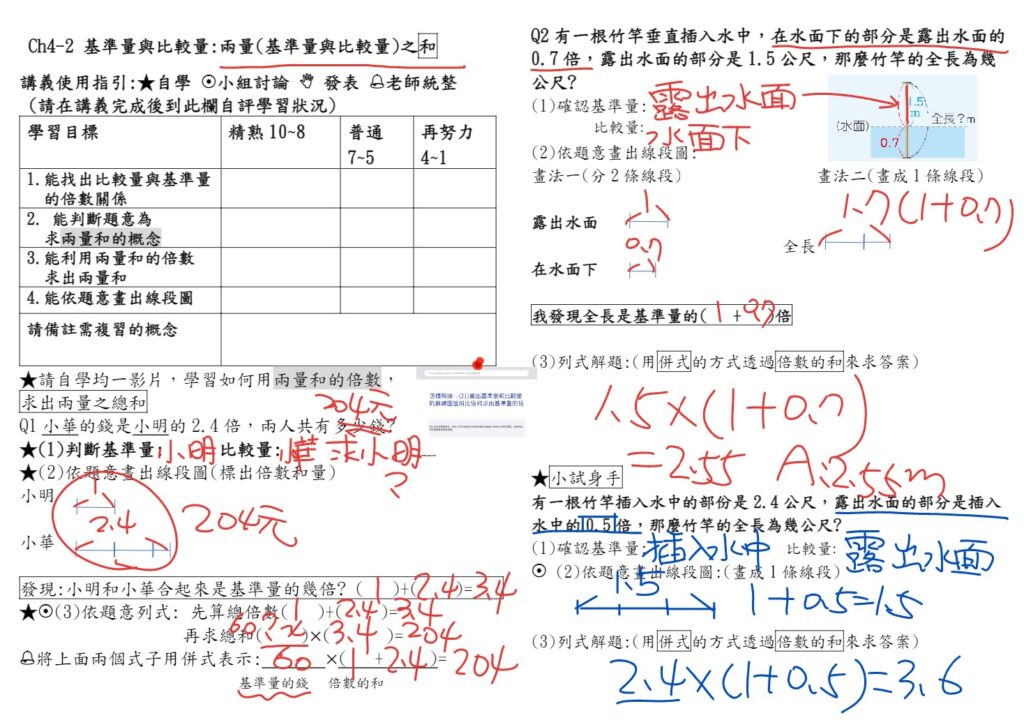 Ch4-2 基準量與比較量:兩量(基準量與比較量)之和
講義使用指引:★自學 ⊙小組討論 發表 老師統整
(請在講義完成後到此欄自評學習狀況)
學習目標 精熟 10~8 普通 7~5 再努力 4~1
1.能找出比較量與基準量的倍數關係
2. 能判斷題意為求兩量和的概念
3.能利用兩量和的倍數求出兩量和
4.能依題意畫出線段圖
請備註需複習的概念
★請自學均一影片，學習如何用兩量和的倍數，
求出兩量之總和
204元
Q1 小華的錢是小明的 2.4 倍，兩人共有多少錢?
★(1)判斷基準量:小明 比較量:小華 求小明
?
★(2)依題意畫出線段圖(標出倍數和量)
小明 1
2.4 204元
小華
發現:小明和小華合起來是基準量的幾倍? (1)+(2.4)=3.4
★⊙(3)依題意列式: 先算總倍數(1)+(2.4)=3.4
再求總和(60)×(3.4)=204
將上面兩個式子用併式表示: 60 ×(1+2.4)=204
基準量的錢 倍數的和
Q2 有一根竹竿垂直插入水中，在水面下的部分是露出水面的
0.7 倍，露出水面的部分是 1.5 公尺，那麼竹竿的全長為幾
公尺?
(1)確認基準量: 露出水面
比較量: 水面下
1.5 m
(水面) 全長?m
0.7
(2)依題意畫出線段圖:
畫法一(分 2 條線段) 畫法二(畫成 1 條線段)
1 1.7(1+0.7)
露出水面
全長
0.7
在水面下
我發現全長是基準量的(1+0.7)倍
(3)列式解題:(用併式的方式透過倍數的和來求答案)
1.5×(1+0.7)
=2.55 A:2.55m
★小試身手
有一根竹竿插入水中的部份是 2.4 公尺，露出水面的部分是插入
水中的 0.5 倍，那麼竹竿的全長為幾公尺?
(1)確認基準量: 插入水中 比較量: 露出水面
⊙ (2)依題意畫出線段圖:(畫成 1 條線段)
1.5 1+0.5=1.5
(3)列式解題:(用併式的方式透過倍數的和來求答案)
2.4×(1+0.5)=3.6